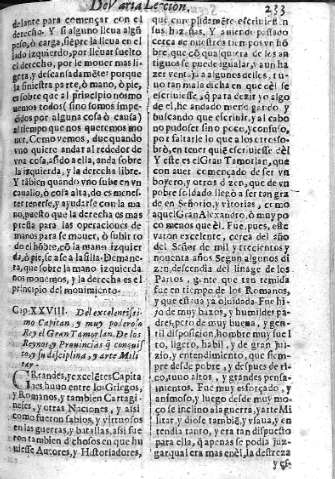 De Varia Lecion. 233
delante para començar con el
derecho. Y si alguno lleua algũ
peso, ò carga, siẽpre la lleua en el
lado izquierdo, por lleuar suelto
el derecho, por le mouer mas li-
gera, y descansadamẽte: porque
la siniestra parte, ò mano, ò pie,
es sobre que al principio no mo-
nemos todos (sino somos impe-
didos por alguna cosa ò causa)
al tiempo que nos queremos mo
uer. Como vemos, que quando
vno quiere andar al rededor de
vna cosa, asido a ella, anda sobre
la izquierda, y la derecha libre.
Y tãbien quando vno sube en vn
cauallo, ò cosa alta, do es menes-
ter tenerse, y ayudarse con la ma
no, puesto que la derecha es mas
presta para las operaciones de
manos para se mouer, ò subir to
do el hõbre, cõ la mano izquier-
da, ò pie, se ase a la silla. Demane-
ra, que sobre la mano izquierda
nos mouemos, y la derecha es el
principio del mouimiento.
Cap. XXVIII. Del excelentissi-
mo Capitan, y muy poderoso
Rey el Gran Tamorlan. De los
Reynos, y Prouincias q̃ conquis
to, y su disciplina, y arte Mili
tar.
GRandes, y excelẽtes Capita
nes huuo entre los Griegos,
y Romanos, y tambien Cartagi-
neses, y otras Naciones, y assi
como fueron sabios, y virtuosos
en las guerras, y batallas, assi fue
ron tambien dichosos en que hu
uiesse Autores, y Historiadores,
que cumplidamẽte escriuiessen
sus hazañas. Y auiendo passado
cerca de nuestros tiempos vn hõ
bre, que cõ qualquiera de los an
tiguos se puede igualar, y aun ha
zer ventaja a algunos dellos, tu
uo tan mala dicha en que cosa se
escriuiesse, q̃ para dezir yo algo
de el, he andado mendigando, y
buscando que escriuir, y al cabo
no pude ser sino poco, y confuso,
por faltarle lo que a los otros so-
brò, en tener quiẽ escriuiesse dèl
Y este es el Gran Tamorlan, que
con auer començado de ser vn
boyero, y otros dizen, que de vn
pobre soldado llegò a ser tan grã
de en Señorio, y vitorias, como
aquel Gran Alexandro, ò muy po
co menos que èl. Fue, pues, este
varon excelente, cerca del año
del Señor de mil y trecientos y
nouenta años. Segun algunos di
zen, descendia del linage de los
Partos, gente que tan temida
fue en tiempo de los Romanos,
y que estaua ya oluidada. Fue hi
jo de muy baxos, y humildes pa-
dres, pero de muy buena, y gen-
til disposicion, hombre muy suel
to, ligero, habil, y de gran juy-
zio, y entendimiento, que siem-
pre desde pobre, y despues de ri-
co, tuuo altos, y grandes pensa-
mientos. Fue muy esforçado, y
animoso, y luego desde muy mo-
ço se inclinò a la guerra, y arte Mi
litar, y diose tambiẽ, y vsaua, y en
tendia tanto, y era tan dispuesto
para ella, q̃ apenas se podia juz-
gar qual era mas en èl, la destreza